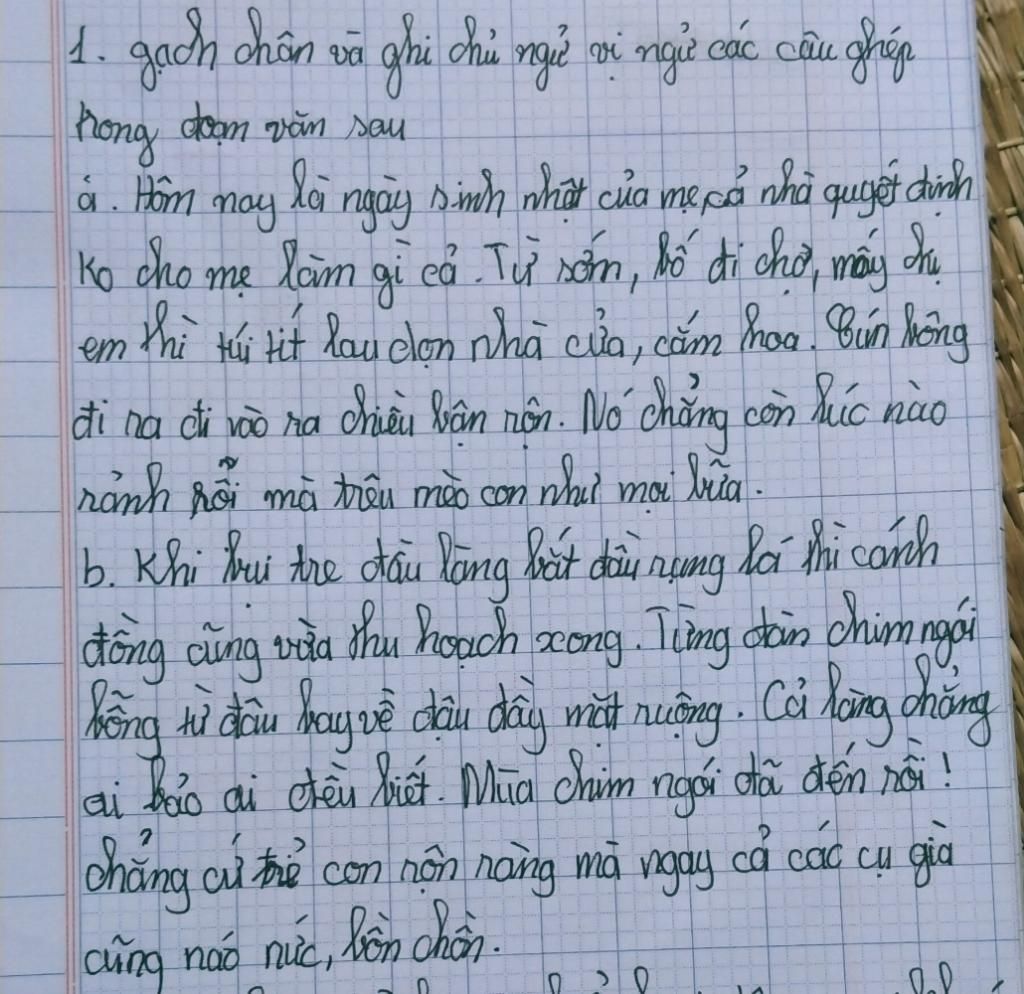 1. gạch chân và ghi chủ ngữ vị ngữ các câu ghép
trong đoạn văn sau
a. Hôm nay là ngày sinh nhật của mẹ, cả nhà quyết định
ko cho mẹ làm gì cả. Từ sớm, bố đi chợ, mấy chị
em thì túi tít lau dọn nhà cửa, cắm hoa. Bún bông
đi ra đi vào ra chiều bận rộn. Nó chẳng còn lúc nào
rảnh rỗi mà trêu mèo con như mọi bữa.
b. Khi bụi tre đầu làng bắt đầu rụng lá thì cánh
đồng cũng vừa thu hoạch xong. Từng đàn chim ngói
bỗng từ đâu bay về đậu đầy mặt ruộng. Cả làng chẳng
ai bảo ai đều biết. Mùa chim ngói đã đến rồi!
chẳng cứ trẻ con rộn ràng mà ngay cả các cụ già
cũng náo nức, bồn chồn.